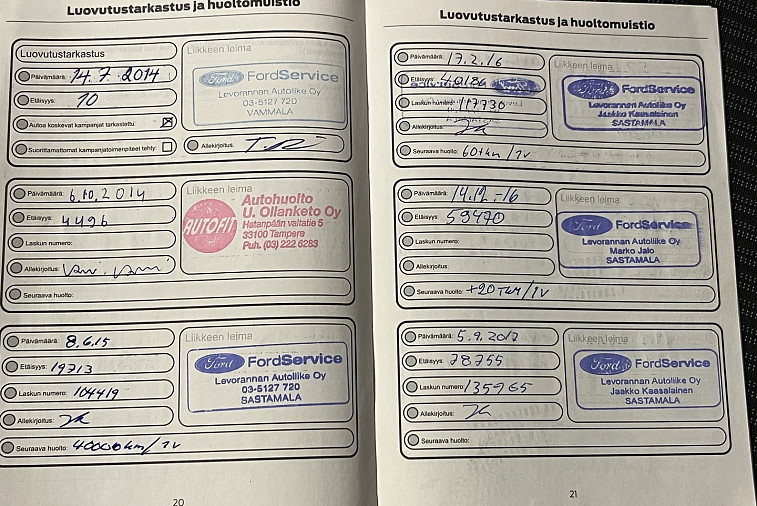 Luovutustarkastus ja huoltomuistio
Luovutustarkastus
Päivämäärä: 14.7.2014
Etäisyys: 10
Autoa koskevat kampanjat tarkastettu:
Suorittamattomat kampanjatoimenpiteet tehty:
Liikkeen leima
Ford FordService
Levorannan Autoliike Oy
03-5127 720
VAMMALA
Allekirjoitus:
Päivämäärä: 6.10.2014
Etäisyys: 4496
Laskun numero:
Allekirjoitus:
Seuraava huolto:
Liikkeen leima
AUTOFIT
Autohuolto
U. Ollanketo Oy
Hatanpään valtatie 5
33100 Tampere
Puh. (03) 222 6283
Päivämäärä: 8.6.15
Etäisyys: 19713
Laskun numero: 104419
Allekirjoitus:
Seuraava huolto: 40000km/1v
Liikkeen leima
Ford FordService
Levorannan Autoliike Oy
03-5127 720
SASTAMALA
20
Luovutustarkastus ja huoltomuistio
Päivämäärä: 17.2.16
Etäisyys: 40186
Laskun numero: 117730
Allekirjoitus:
Seuraava huolto: 60tkm/1v
Liikkeen leima
Ford FordService
Levorannan Autoliike Oy
Jaakko Kaasalainen
SASTAMALA
Päivämäärä: 14.12.-16
Etäisyys: 59470
Laskun numero:
Allekirjoitus:
Seuraava huolto: +20TKM/1V
Liikkeen leima
Ford FordService
Levorannan Autoliike Oy
Marko Jalo
SASTAMALA
Päivämäärä: 5.9.2017
Etäisyys: 78755
Laskun numero: 135965
Allekirjoitus:
Seuraava huolto:
Liikkeen leima
Ford FordService
Levorannan Autoliike Oy
Jaakko Kaasalainen
SASTAMALA
21